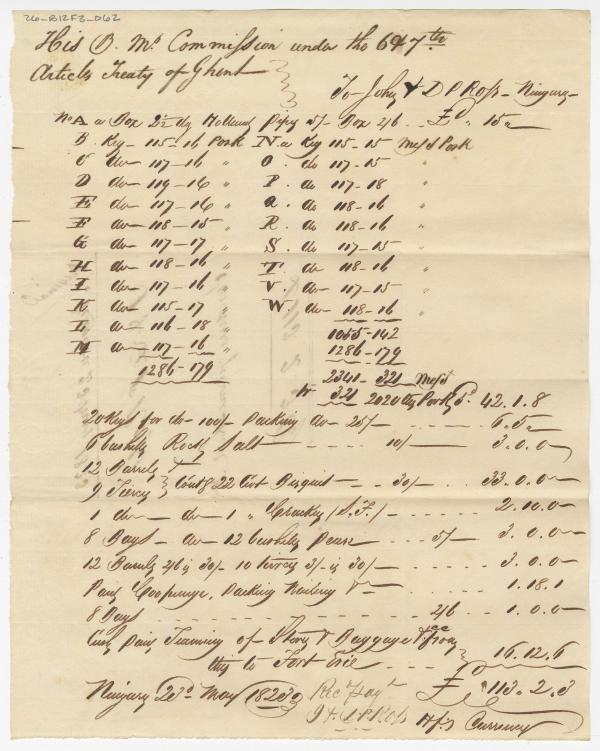 26-B12F3-062
His B. Ms Commission under the 6 & 7th
Articles Treaty of Ghent
To John & D P Ross - Niagara -
No A a Box 2½ dz Holland Pipes 5/- Box 2/6 £ " 15 "
B. Keg - 115-16 Pork N. a Keg 115-15 Mess'd Pork
C do 117-16 " O. do 117-15 "
D do 119-16 " P. do 117-18 "
E do 117-16 " Q. do 118-16 "
F do 118-15 " R. do 118-16 "
G do 117-17 " S. do 117-15 "
H do 118-16 " T do 118-16 "
I do 117-16 " V. do 117-15 "
K do 115-17 " W. do 118-16 "
L do 116-18 " 1055-142
M do 117-16 " 1286-179
1286-179 2341-321 Mess'd
321 2020 lbs Pork 5d. 42.1.8
20 Kegs for do 100/- Packing do 25/- 6.5.-
6 bushells Rock Salt 10/- 3.0.0
12 Barrels &
9 Tierces } Cont'g 22 Cwt Bisquit 30/- 33.0.0
1 do - do 1 " Crackers (S.F.) 2.10.0
8 Bags - do 12 bushells Pease 5/- 3.0.0
12 Barrels 2/6 is 30/- 10 tierces 3/- is 30/- 3.0.0
Paid Cooperage, Packing Nailing &c 1.18.1
8 Bags 2/6 1.0.0
Cash paid Teaming of Stores & Baggage &c &c from
this to Fort Erie 16.12.6
£ 113.2.3
Niagara 23d May 1823
Rec'd pay't
J & D. P. Ross
H. fx Currency